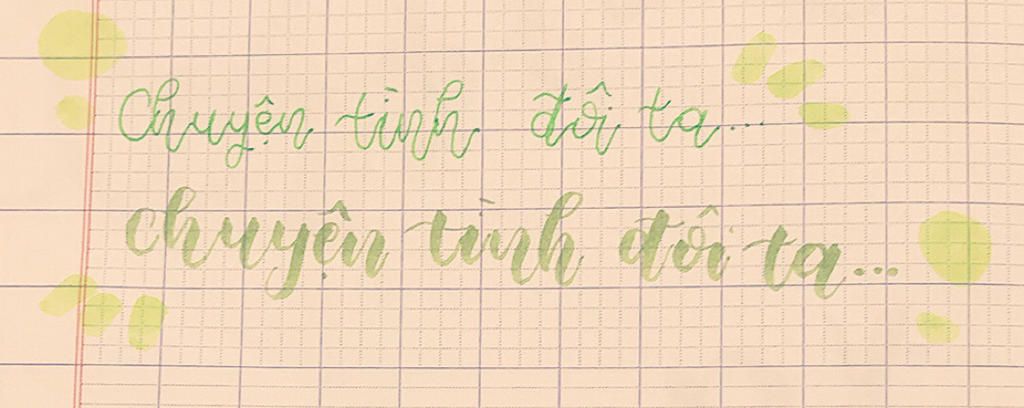 Chuyện tình đôi ta...
chuyện tình đôi ta...